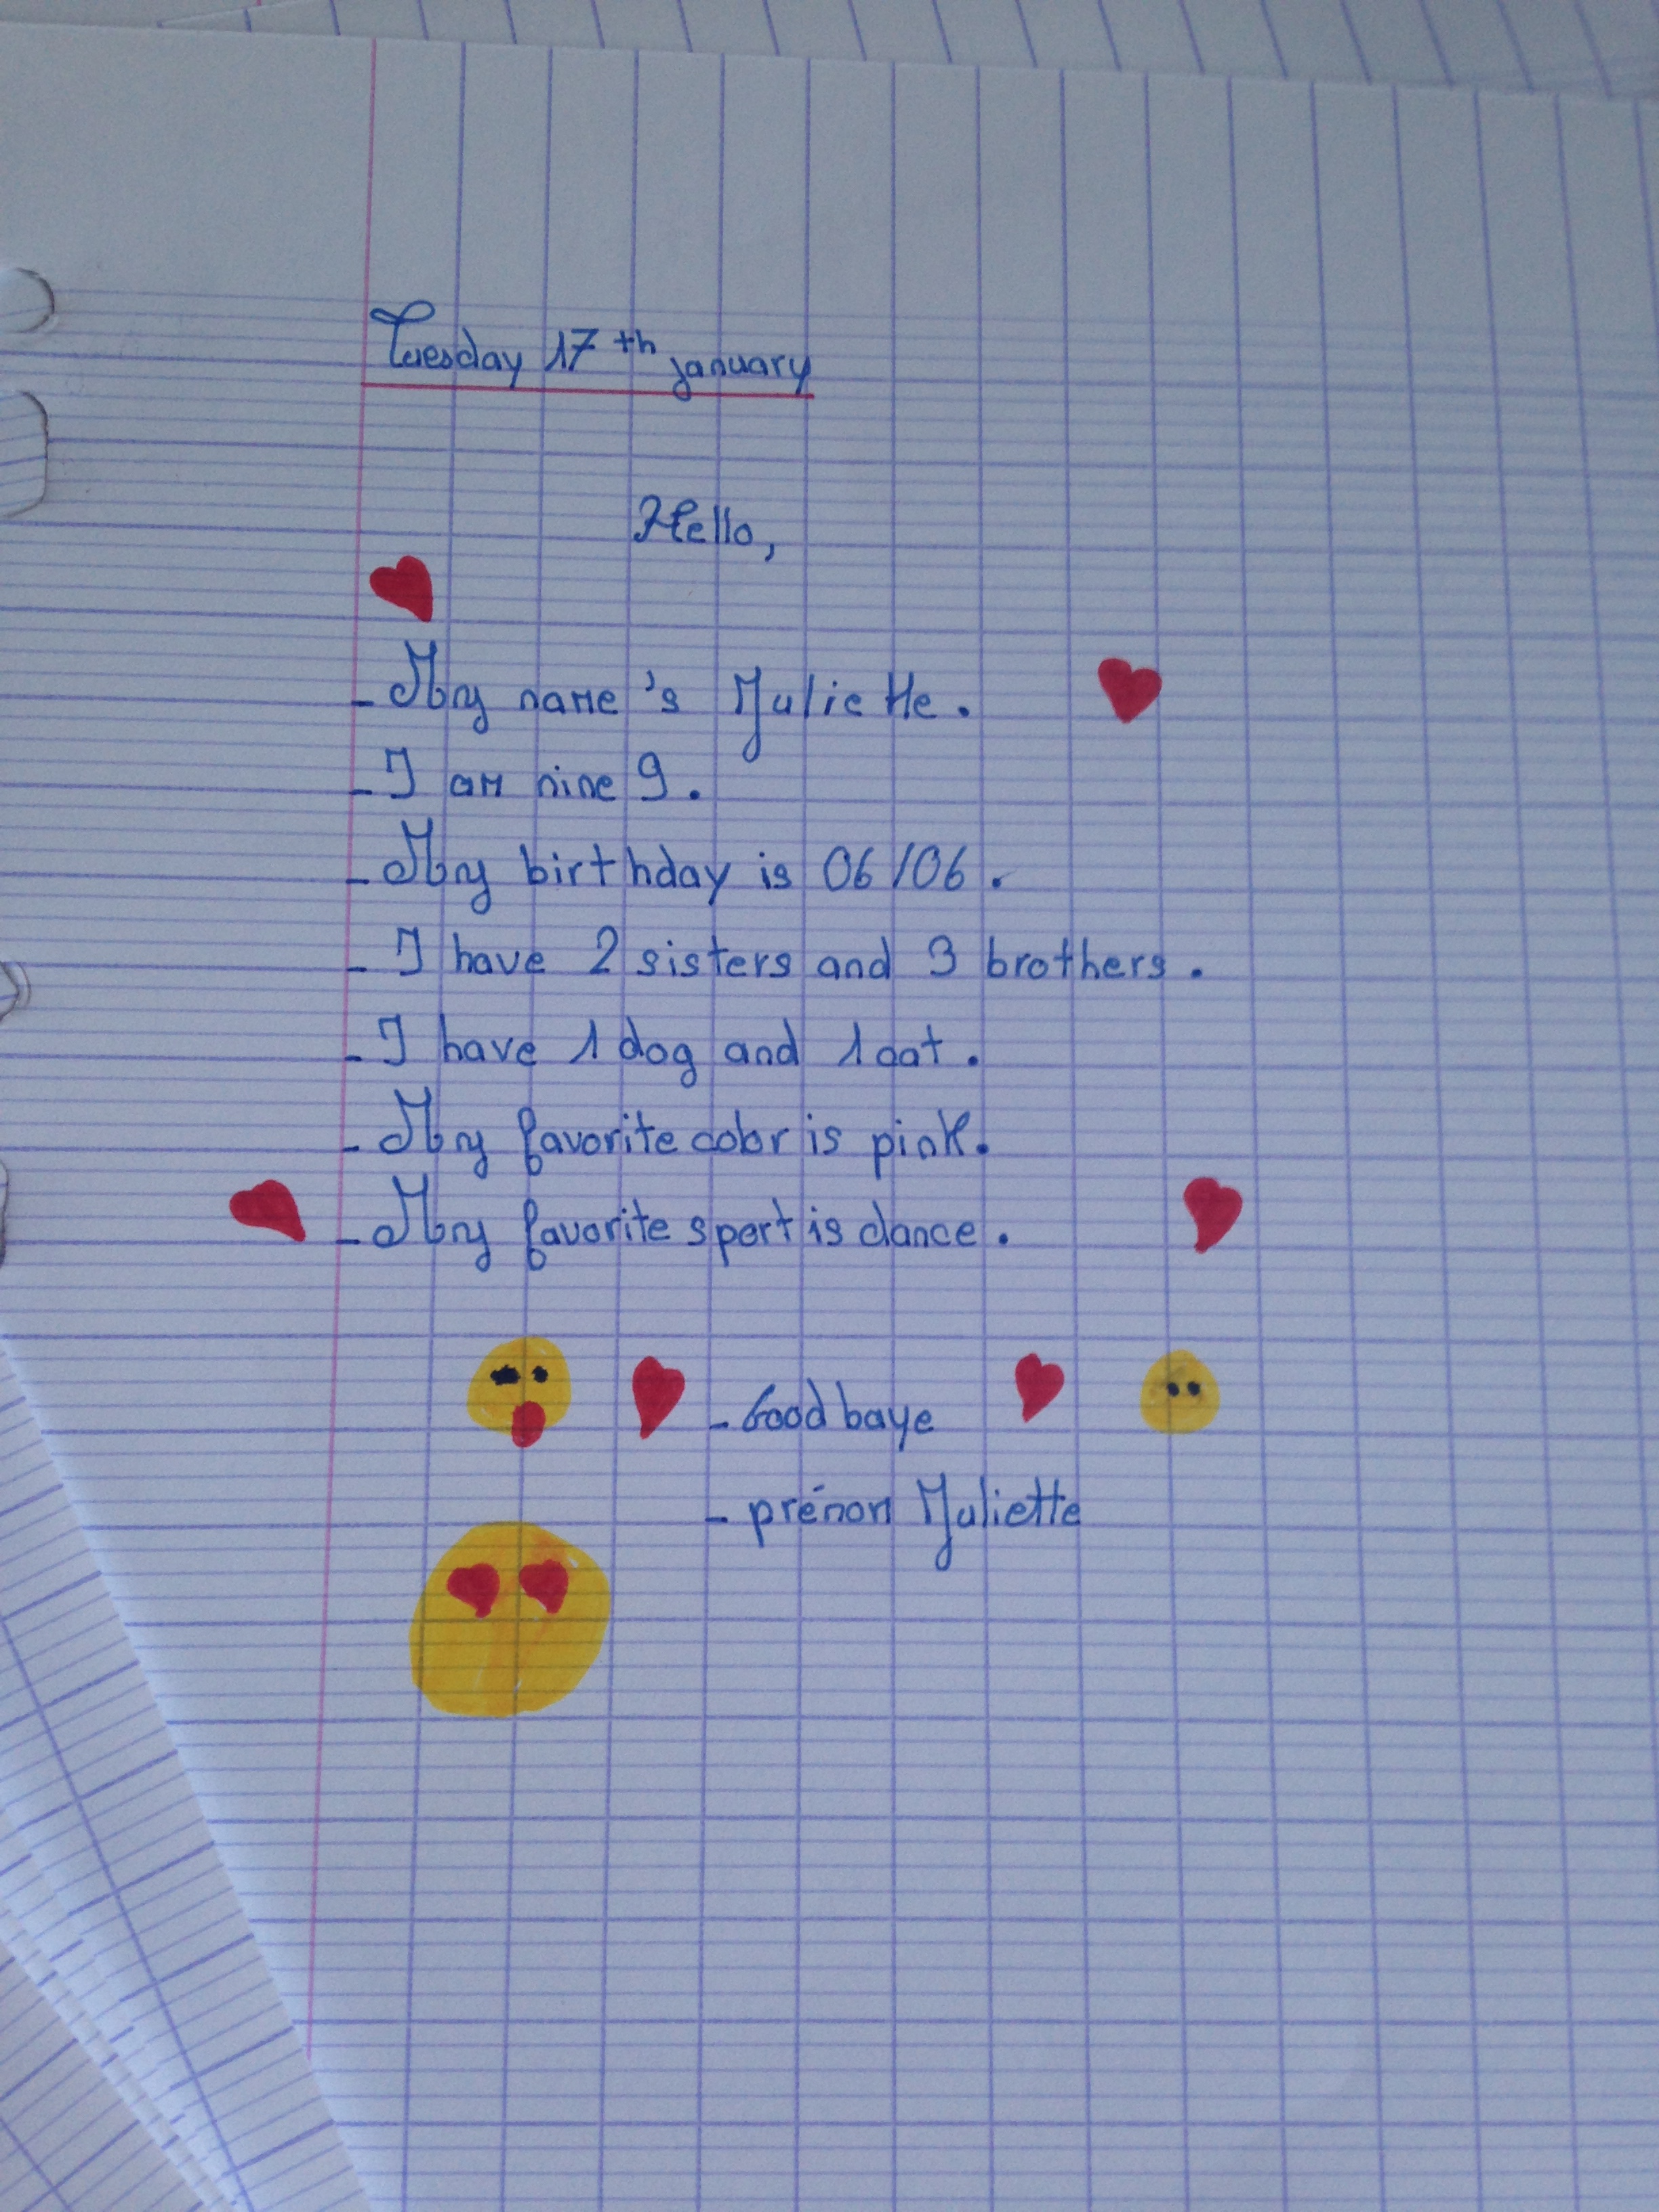 Tuesday 17th january
Hello,
- My name's Juliette.
- I am nine 9.
- My birthday is 06/06.
- I have 2 sisters and 3 brothers.
- I have 1 dog and 1 cat.
- My favorite color is pink.
- My favorite sport is dance.
- Good baye
- prénom Juliette